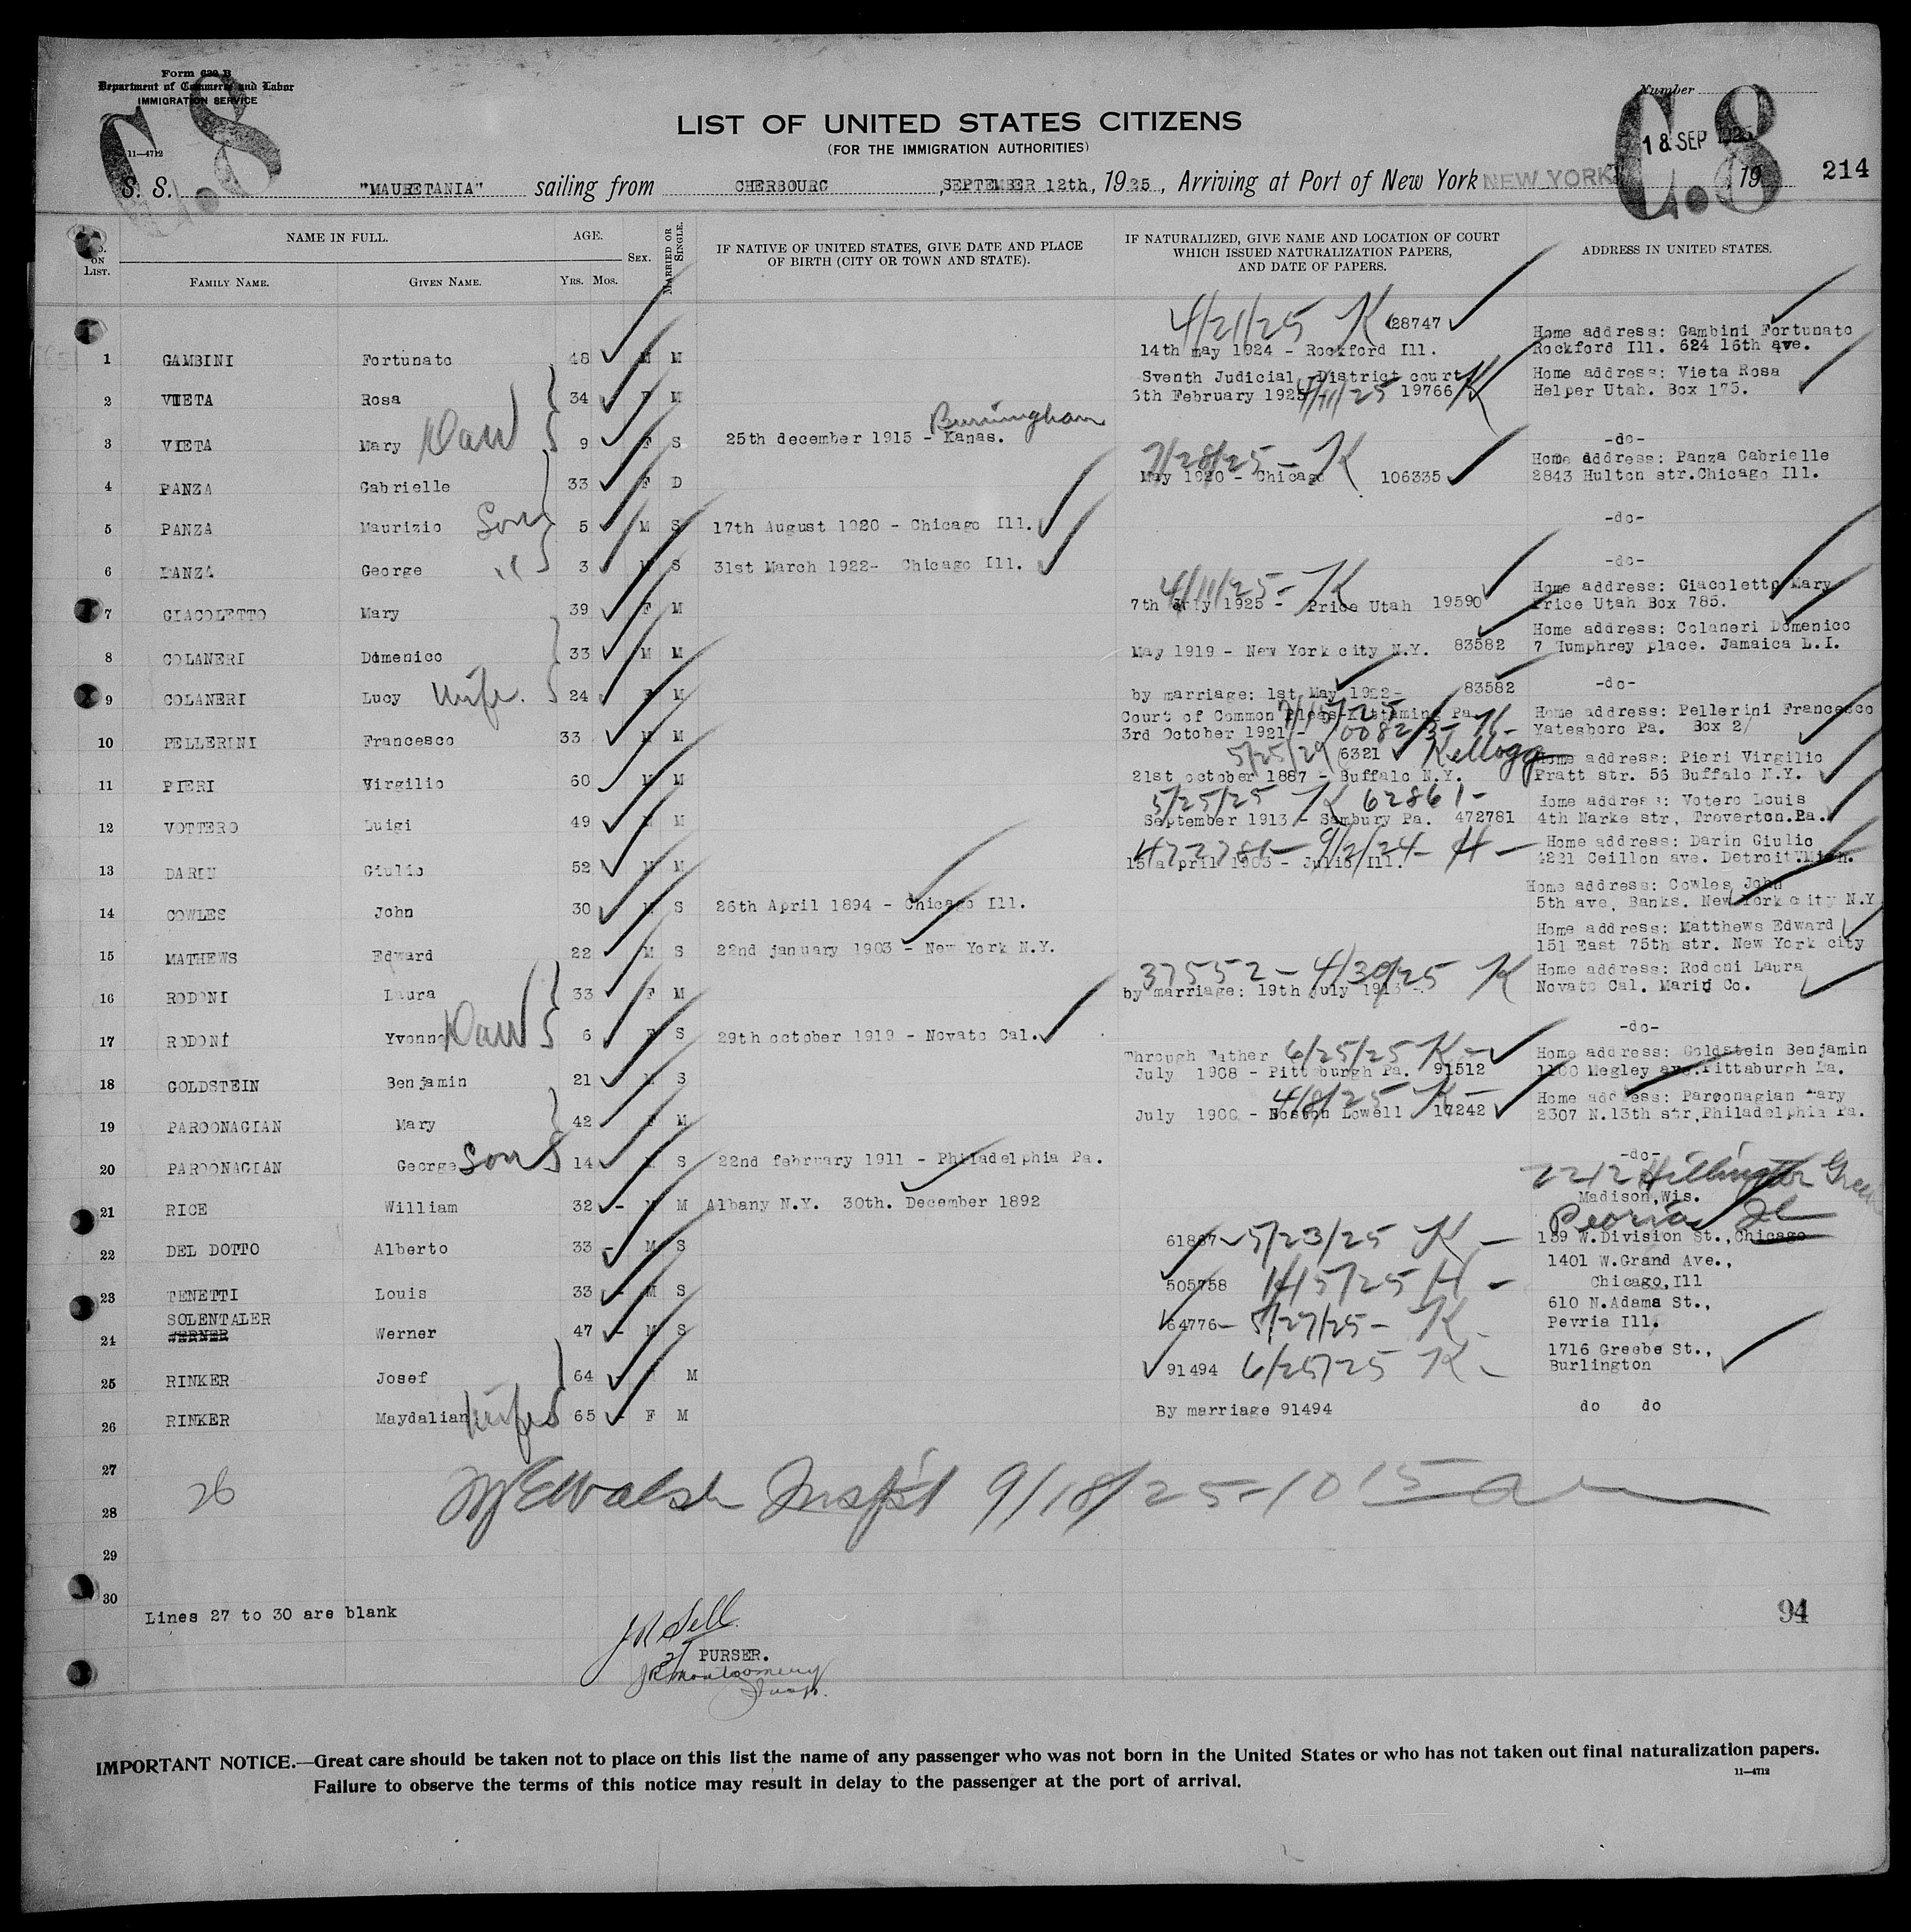 Form 630 B
Department of Commerce and Labor
IMMIGRATION SERVICE
11—4712
C.8
Number
C.8
18 SEP 1925
LIST OF UNITED STATES CITIZENS
(FOR THE IMMIGRATION AUTHORITIES)
S. S. "MAURETANIA" sailing from CHERBOURG, SEPTEMBER 12th, 1925, Arriving at Port of New York NEW YORK 19 214
No. ON LIST. NAME IN FULL. AGE. SEX. MARRIED OR SINGLE. IF NATIVE OF UNITED STATES, GIVE DATE AND PLACE OF BIRTH (CITY OR TOWN AND STATE). IF NATURALIZED, GIVE NAME AND LOCATION OF COURT WHICH ISSUED NATURALIZATION PAPERS, AND DATE OF PAPERS. ADDRESS IN UNITED STATES.
FAMILY NAME. GIVEN NAME. YRS. MOS.
4/21/25 K 28747 Home address: Gambini Fortunato
1 GAMBINI Fortunato 48 M M 14th may 1924 - Rockford Ill. Rockford Ill. 624 16th ave.
Sventh Judicial District court K Home address: Vieta Rosa
2 VIETA Rosa 34 F M 6th February 1925 /11/25 19766 Helper Utah. Box 175.
Burmingham
3 VIETA Mary Dau 9 F S 25th december 1915 - Kanas. -do-
7/28/25 - K Home address: Panza Gabrielle
4 PANZA Gabrielle 33 F D May 1920 - Chicago 106335 2843 Hulton str.Chicago Ill.
5 PANZA Maurizio Son 5 M S 17th August 1920 - Chicago Ill. -do-
6 PANZA George " 3 M S 31st March 1922- Chicago Ill. -do-
4/11/25 - K Home address: Giacoletto Mary
7 GIACOLETTO Mary 39 F M 7th July 1925 - Price Utah 19590 Price Utah Box 785.
Home address: Colaneri Domenico
8 COLANERI Domenico 33 M M May 1919 - New York city N.Y. 83582 7 Humphrey place. Jamaica L.I.
9 COLANERI Lucy Wife. 24 F M by marriage: 1st May 1922- 83582 -do-
Court of Common Pleas Kittaming Pa. 7/15/25 Home address: Pellerini Francesco
10 PELLERINI Francesco 33 M M 3rd October 1921 - K - Yatesboro Pa. Box 2
5/25/24 6321 Kellogg Home address: Pieri Virgilio
11 PIERI Virgilio 60 M M 21st october 1887 - Buffalo N.Y. Pratt str. 56 Buffalo N.Y.
5/25/25 K 62861 - Home address: Votero Louis
12 VOTTERO Luigi 49 M M September 1913 - Sambury Pa. 472781 4th Narke str, Treverton.Pa.
472781 - 9/2/24 - H - Home address: Darin Giulio
13 DARIN Giulio 52 M M 15 april 1903 - Julio Ill. 4221 Ceillon ave. Detroit.Mich.
Home address: Cowles John
14 COWLES John 30 M S 26th April 1894 - Chicago Ill. 5th ave, Banks. New York city N.Y
Home address: Matthews Edward
15 MATHEWS Edward 22 M S 22nd january 1903 - New York N.Y. 151 East 75th str. New York city
37552 - 4/30/25 K Home address: Rodoni Laura
16 RODONI Laura 33 F M by marriage: 19th July 1913 - Novato Cal. Marin Co.
17 RODONI Yvonne Dau 6 F S 29th october 1919 - Novato Cal. -do-
Through Father 6/25/25 K - Home address: Goldstein Benjamin
18 GOLDSTEIN Benjamin 21 M S July 1908 - Pittsburgh Pa. 91512 1100 Megley ave.Pittaburgh Pa.
4/8/25 K - Home address: Paroonagian Mary
19 PAROONAGIAN Mary 42 F M July 1900 - Boston Lowell 17242 2307 N.13th str,Philadelphia Pa.
20 PAROONAGIAN George Son 14 M S 22nd february 1911 - Philadelphia Pa. -do-
2212
21 RICE William 32 - M M Albany N.Y. 30th. December 1892 Madison,Wis.
Peoria Ill
22 DEL DOTTO Alberto 33 - M S 61867 5/23/25 K - 159 W.Division St.,Chicago
1401 W.Grand Ave.,
23 TENETTI Louis 33 - M S 505758 1/15/25 H - Chicago,Ill
SOLENTALER 610 N.Adams St.,
24 WERNER Werner 47 - M S 64776 - 5/27/25 - K - Pevria Ill.
1716 Greebe St.,
25 RINKER Josef 64 - M 91494 6/25/25 K - Burlington
26 RINKER Maydalian Wife 65 - F M By marriage 91494 do do
27
26 Walsh Inspt 9/18/25 - 10 15 a
28
29
30
Lines 27 to 30 are blank 94
J R Sell
PURSER.
JR Montgomery
Insp.
IMPORTANT NOTICE.—Great care should be taken not to place on this list the name of any passenger who was not born in the United States or who has not taken out final naturalization papers.
Failure to observe the terms of this notice may result in delay to the passenger at the port of arrival.
11—4712